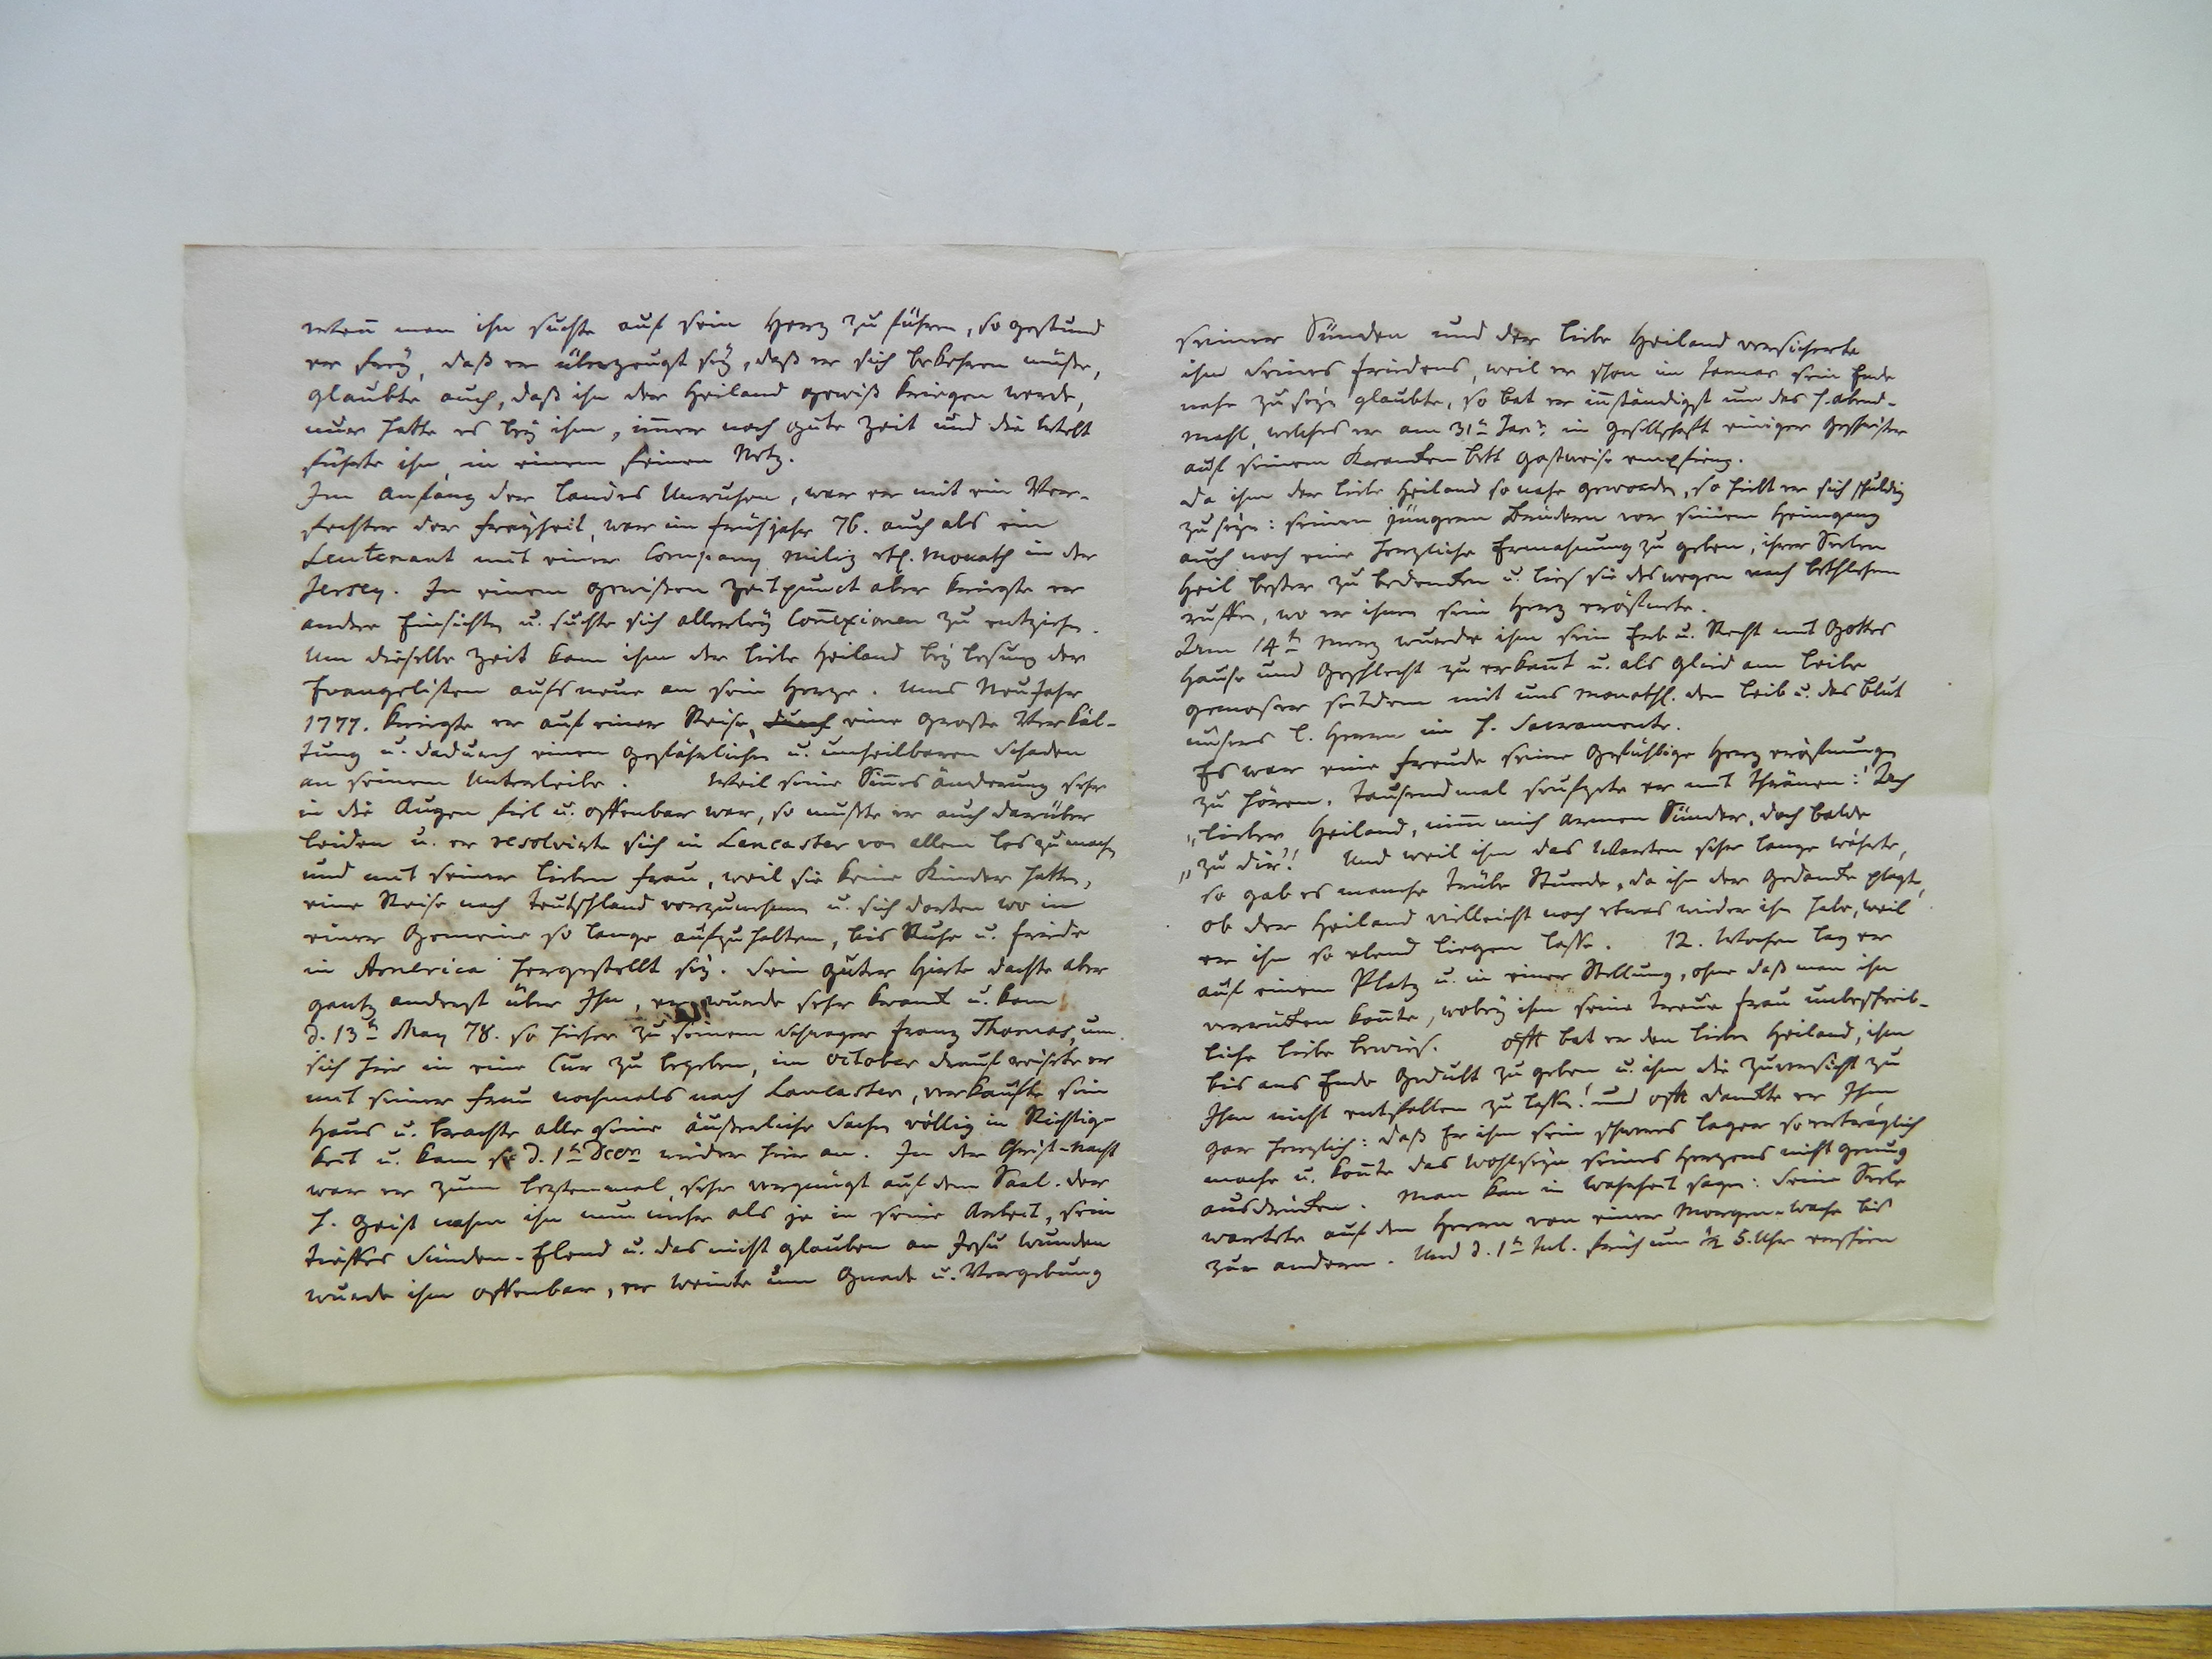 wenn man ihn suchte auf sein Herz zu führen, so gestund
er frey, daß er überzeugt sey, daß er sich bekehren müße,
glaubte auch, daß ihn der Heiland gewiß kriegen werde,
nur hatte es bey ihm, im̄er noch gute Zeit und die Welt
führte ihn, in einem feinen Netz.
Im Anfang der Landes Unruhen, war er mit ein Ver-
fechter der Freyheit, war im Frühjahr 76. auch als ein
Leutenant mit einer Company Miliz etl. Monath in der
Jersey. In einem gewißen Zeitpunct aber kriegte er
andre Einsichten u. suchte sich allerley Con̄exionen zu entziehn.
Um dieselbe Zeit kam ihm der liebe Heiland bey Lesung der
Evangelisten aufs neue an sein Herze. Ums NeuJahr
1777. kriegte er auf einer Reise, durch eine große Verkäl-
tung u. dadurch einen gefährlichen u. unheilbaren Schaden
an seinem Unterleibe. Weil seine Sin̄es änderung sehr
in die Augen fiel u. offenbar war, so mußte er auch darüber
leiden u. er resolvirte sich in Lancaster von allem los zu machen
und mit seiner lieben Frau, weil sie keine Kinder hatten,
eine Reise nach Teutschland vorzunehmen u. sich dorten wo in
einer Gemeine so lange aufzuhalten, bis Ruhe u. Friede
in America hergestellt sey. Sein guter Hirte dachte aber
gantz anderst über Ihn, er wurde sehr kranck u. kam
d. 13tn May 78. so hieher zu seinem Schwager Franz Thomas, um
sich hier in eine Cur zu begeben, im October drauf reisete er
mit seiner Frau nochmals nach Lancaster, verkaufte sein
Haus u. brachte alle seine äußerliche Sachen völlig in Richtig-
keit u. kam so d. 1tn Decr wieder hier an. In der Christ-Nacht
war er zum leztenmal, sehr vergnügt auf dem Saal. der
h. Geist nahm ihn nun mehr als je in seine Arbeit, sein
tieffes Sünden-Elend u. das nicht glauben an Jesu Wunden
wurde ihm offenbar, er weinte um Gnade u. Vergebung
seiner Sünden und der liebe Heiland versicherte
ihn seines Friedens, weil er schon im Januar sein Ende
nahe zu seyn glaubte, so bat er in̄ständigst um das h. Abend-
mahl, welches er am 31tn Jan: in Gesellschaft einiger Geschwister
auf seinem Krancken bett gastweise empfieng.
Da ihm der liebe Heiland so nahe geworden, so hielt er sich schuldig
zu seyn: seinen jüngern Brüdern vor seinem Heimgang
auch noch eine herzliche Ermahnung zu geben, ihrer Seelen
Heil beßer zu bedencken u. lies sie deswegen nach Bethlehem
ruffen, wo er ihnen sein Herz eröffnete.
Den 14tn Merz wurde ihm sein Erb u. Recht mit Gottes
Hause und Geschlecht zu erkan̄t u. als Glied am Leibe
genoßer seitdem mit uns monathl. den Leib u. das Blut
unsers l. Herrn im h. Sacramente.
Es war eine Freude seine gefühlige Herz eröffnungen
zu hören. Tausendmal seufzete er mit Thränen: Ach
„lieber Heiland, nim̄ mich armen Sünder, doch balde
„zu dir! Und weil ihm das Warten sehr lange währte,
so gab es manche trübe Stunde, da ihn der Gedancke plagte,
ob der Heiland vielleicht noch etwas wider ihn habe, weil
er ihn so elend liegen laße. 12. Wochen lag er
auf einem Platz u. in einer Stellung, ohne daß man ihn
verrücken kon̄te, wobey ihm seine treue Frau unbeschreib-
liche Liebe bewies. Offt bat er den lieben Heiland, ihm
bis ans Ende Gedult zu geben u. ihm die Zuversicht zu
Ihm nicht entfallen zu laßen! und offt danckte er Ihm
gar herzlich: daß Er ihm sein schweres Lager so erträglich
mache u. kon̄te das Wohlseyn seines Herzens nicht genug
ausdrücken. Man kan in Wahrheit sagen: Seine Seele
wartete auf den Herrn von einer Morgen-Wache bis
zur andern. Und d. 1tn Jul. früh um 1/2 5. Uhr erschien